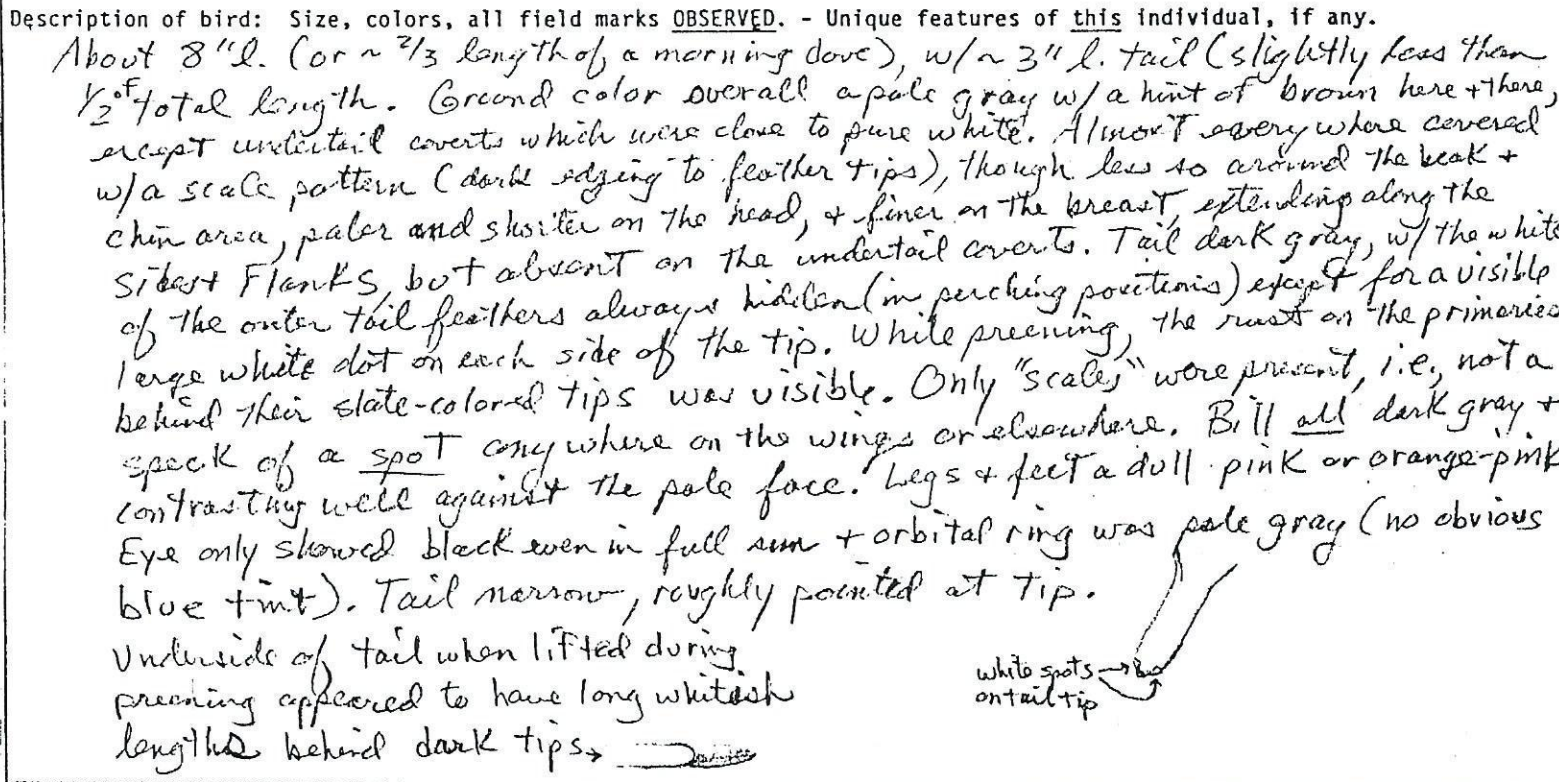 Description of bird: Size, colors, all field marks OBSERVED. - Unique features of this individual, if any.
About 8"l. (or ~ 2/3 length of a morning dove), w/ ~ 3" l. tail (slightly less than
1/2 of total length. Ground color overall a pale gray w/ a hint of brown here + there,
except undertail coverts which were close to pure white. Almost everywhere covered
w/ a scale pattern (dark edging to feather tips), though less so around the beak +
chin area, paler and shorter on the head, + finer on the breast, extending along the
sides + Flanks, but absent on the undertail coverts. Tail dark gray, w/ the white
of the outer tail feathers always hidden (in perching positions) except for a visible
large white dot on each side of the tip. While preening, the rust on the primaries
behind their slate-colored tips was visible. Only "scales" were present, i.e., not a
speck of a spot anywhere on the wings or elsewhere. Bill all dark gray +
contrasting well against the pale face. Legs + feet a dull pink or orange-pink
Eye only showed black even in full sun + orbital ring was pale gray (no obvious
blue tint). Tail narrow, roughly pointed at tip.
Underside of tail when lifted during
preening appeared to have long whitish
lengths behind dark tips→
white spots→
on tail tip